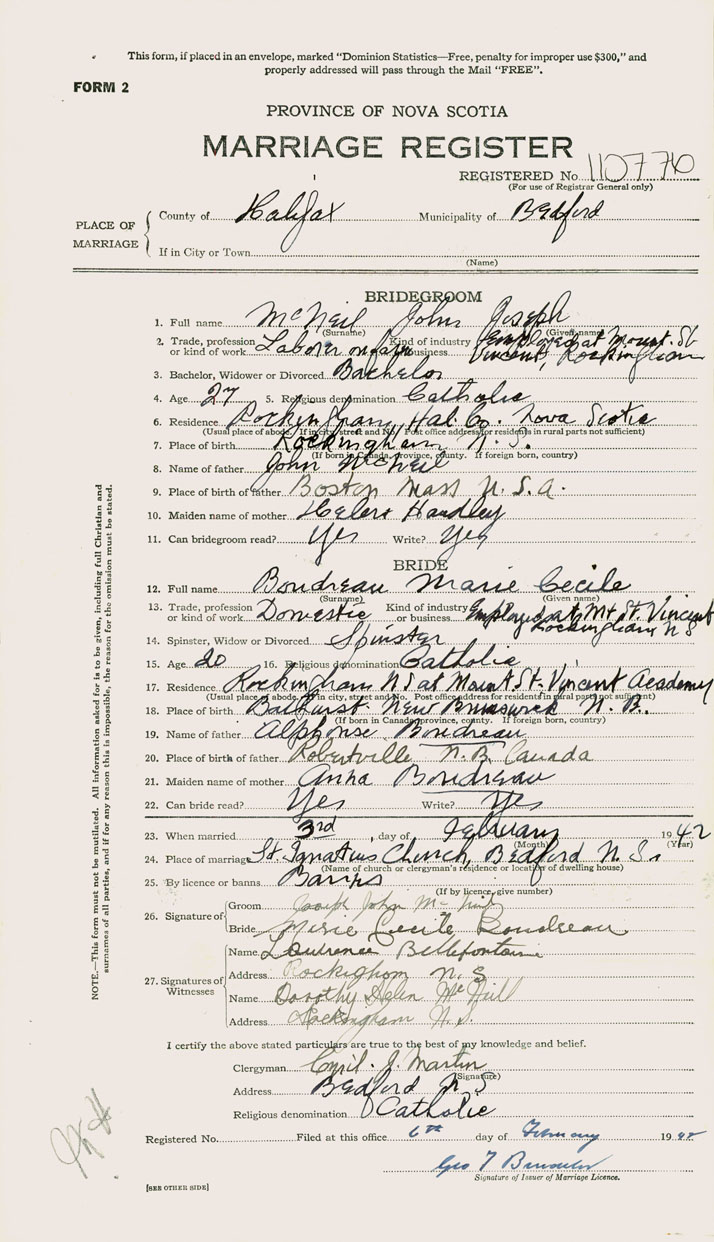 This form, if placed in an envelope, marked "Dominion Statistics—Free, penalty for improper use $300," and
properly addressed will pass through the Mail "FREE".
FORM 2
PROVINCE OF NOVA SCOTIA
MARRIAGE REGISTER
REGISTERED No. 110776
(For use of Registrar General only)
PLACE OF MARRIAGE
County of Halifax Municipality of Bedford
If in City or Town
(Name)
BRIDEGROOM
1. Full name McNeil John Joseph
(Surname) (Given name)
2. Trade, profession or kind of work Laborer on farm Kind of industry or business Employed at Mount St Vincent, Rockingham
3. Bachelor, Widower or Divorced Bachelor
4. Age 27 5. Religious denomination Catholic
6. Residence Rockingham, Hal. Co. Nova Scotia
(Usual place of abode. If in city, street and No. Post office address for residents in rural parts not sufficient)
7. Place of birth Rockingham N. S.
(If born in Canada, province, county. If foreign born, country)
8. Name of father John McNeil
9. Place of birth of father Boston Mass U. S. A.
10. Maiden name of mother Helen Handley
11. Can bridegroom read? Yes Write? Yes
BRIDE
12. Full name Boudreau Marie Cecile
(Surname) (Given name)
13. Trade, profession or kind of work Domestic Kind of industry or business Employed at Mt St. Vincent Rockingham N S
14. Spinster, Widow or Divorced Spinster
15. Age 20 16. Religious denomination Catholic
17. Residence Rockingham N S at Mount St. Vincent Academy
(Usual place of abode. If in city, street and No. Post office address for residents in rural parts not sufficient)
18. Place of birth Bathurst New Brunswick N. B.
(If born in Canada, province, county. If foreign born, country)
19. Name of father Alphonse Boudreau
20. Place of birth of father Robertville N. B. Canada
21. Maiden name of mother Anna Boudreau
22. Can bride read? Yes Write? Yes
23. When married 3rd day of February 1942
(Month) (Year)
24. Place of marriage St. Ignatius Church, Bedford N. S.
(Name of church or clergyman's residence or location of dwelling house)
25. By licence or banns Banns
(If by licence, give number)
26. Signature of
Groom Joseph John McNeil
Bride Marie Cecile Boudreau
27. Signatures of Witnesses
Name Lawrence Bellefontaine
Address Rockingham N. S
Name Dorothy Helen McNeill
Address Rockingham N. S.
I certify the above stated particulars are true to the best of my knowledge and belief.
Clergyman Cyril J. Martin
(Signature)
Address Bedford N S
Religious denomination Catholic
Registered No. Filed at this office 6th day of February 1942
Geo T
Signature of Issuer of Marriage Licence.
[SEE OTHER SIDE]
NOTE.—This form must not be mutilated. All information asked for is to be given, including full Christian and
surnames of all parties, and if for any reason this is impossible, the reason for the omission must be stated.